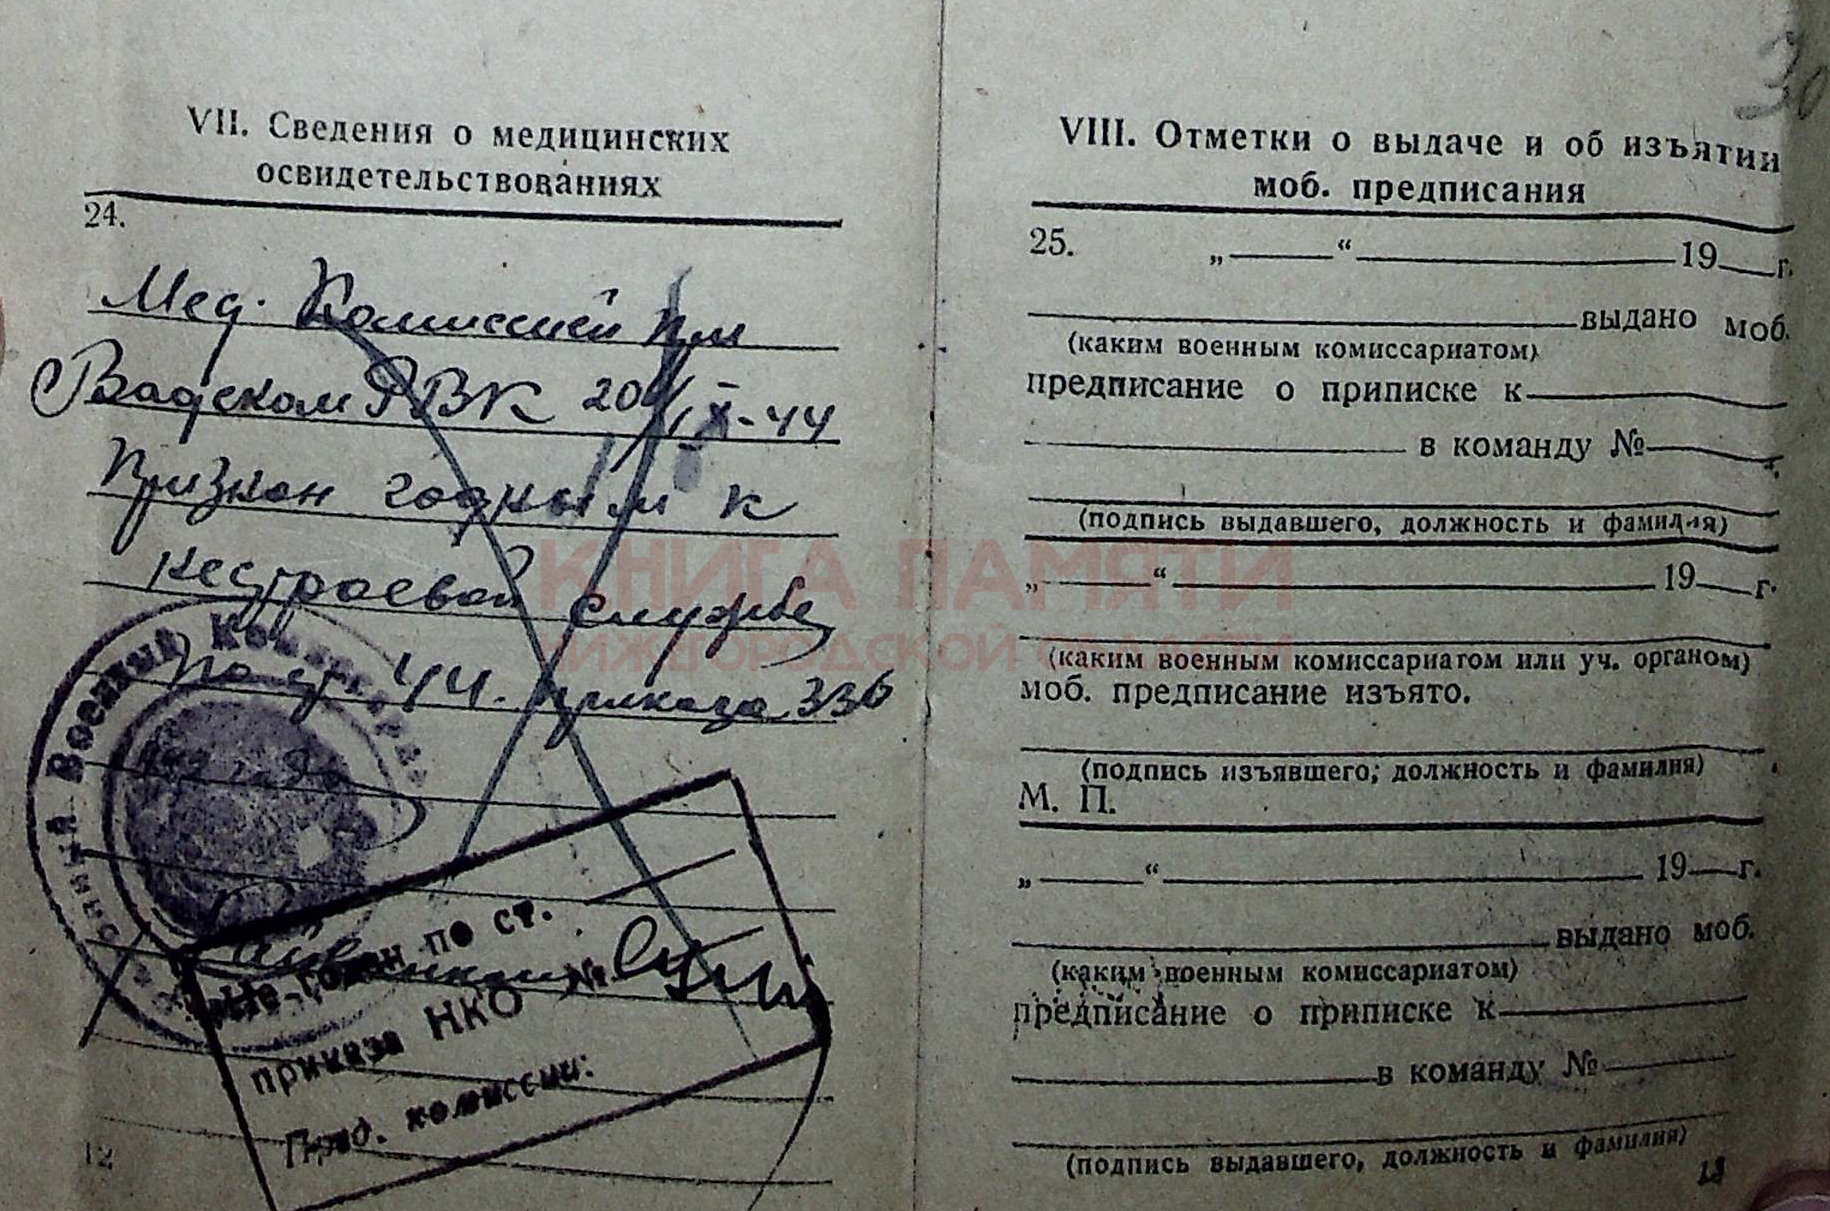 VII. Сведения о медицинских
освидетельствованиях
24.
Мед. Комиссией при
Вадском РВК 20/IX-44
Признан годным к
нестроевой службе
по ст. 44. приказа 336
Военный Комиссариат
Не годен по ст.
приказа НКО №
Пред. комиссии:
12
30
VIII. Отметки о выдаче и об изъятии
моб. предписания
25. „ “ 19 г.
выдано моб.
(каким военным комиссариатом)
предписание о приписке к
в команду №
(подпись выдавшего, должность и фамилия)
„ “ 19 г.
(каким военным комиссариатом или уч. органом)
моб. предписание изъято.
(подпись изъявшего, должность и фамилия)
М. П.
„ “ 19 г.
выдано моб.
(каким военным комиссариатом)
предписание о приписке к
в команду №
(подпись выдавшего, должность и фамилия)
13
КНИГА ПАМЯТИ
НИЖЕГОРОДСКОЙ ОБЛАСТИ